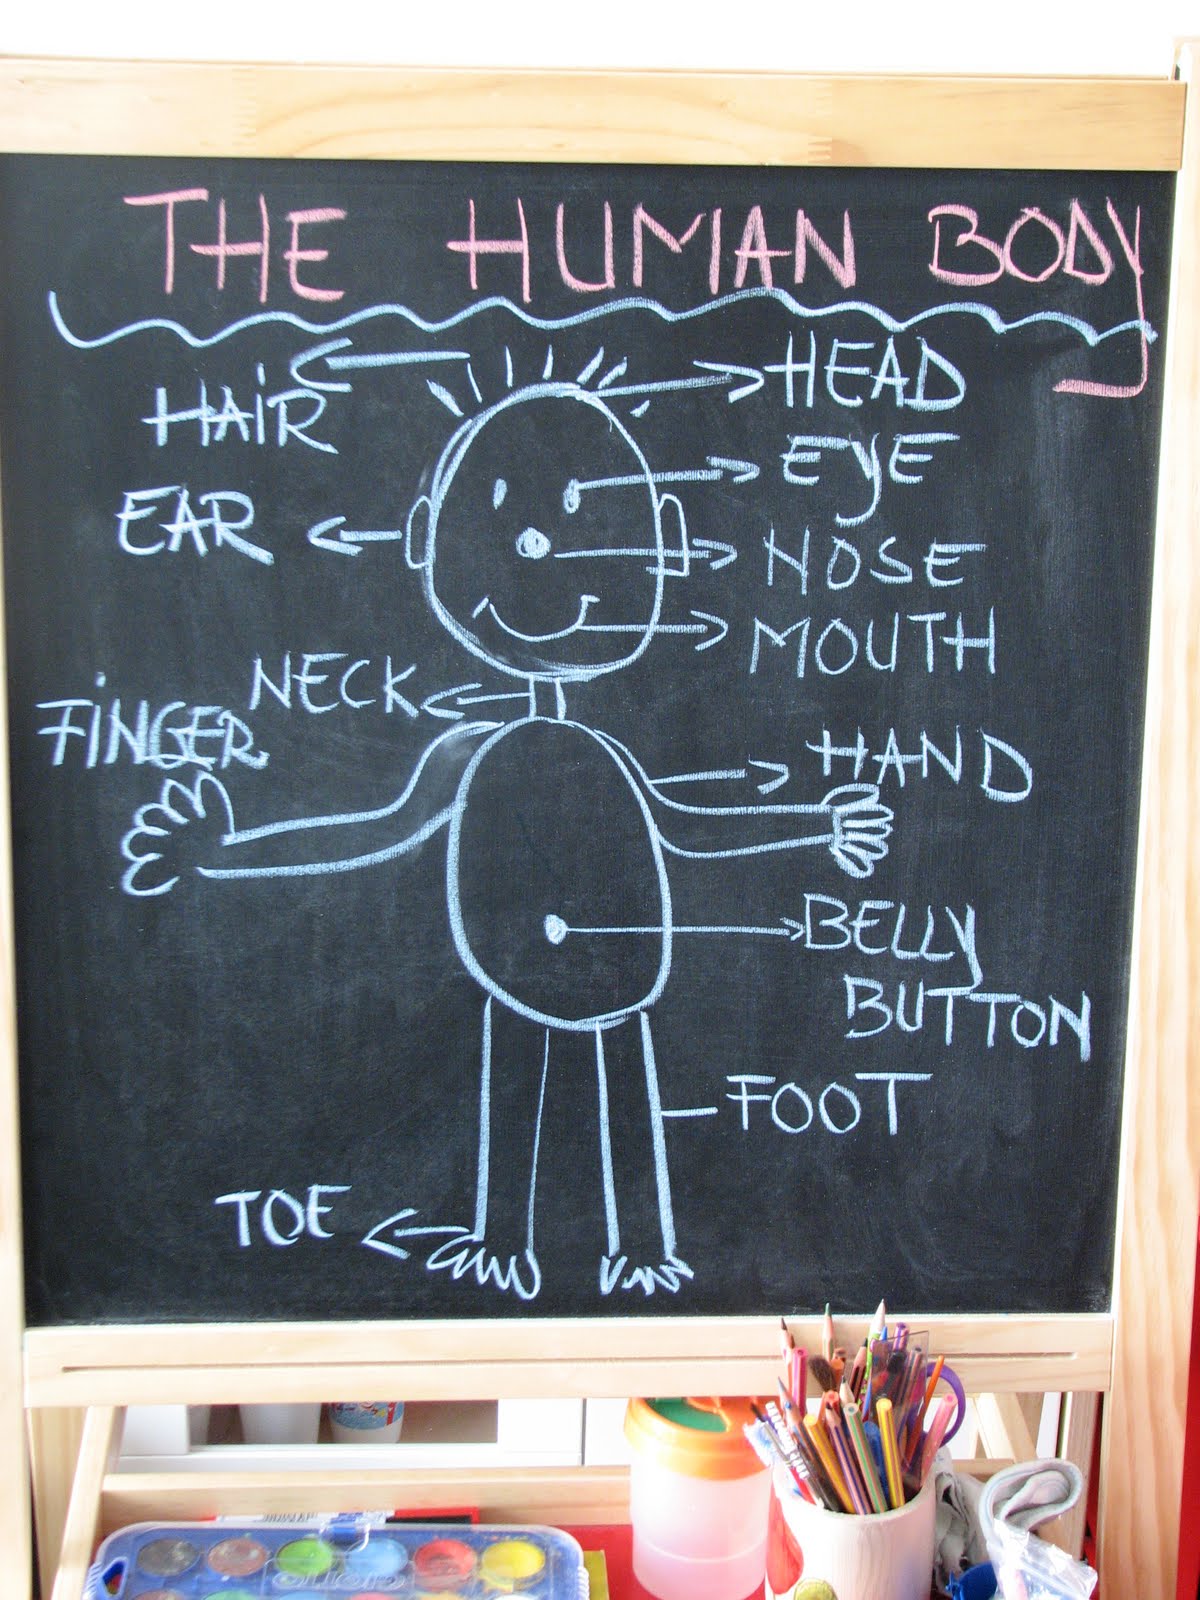 THE HUMAN BODY
HAiR
HEAD
EyE
EAR
NOSE
MOUTH
NECK
FiNGER
HAND
BELLy
BUTTON
FOOT
TOE